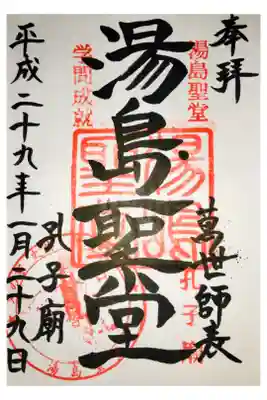 奉拝
湯島聖堂
萬世師表
湯島聖堂
学問成就
湯島聖堂
孔子廟
平成二十九年一月二十九日